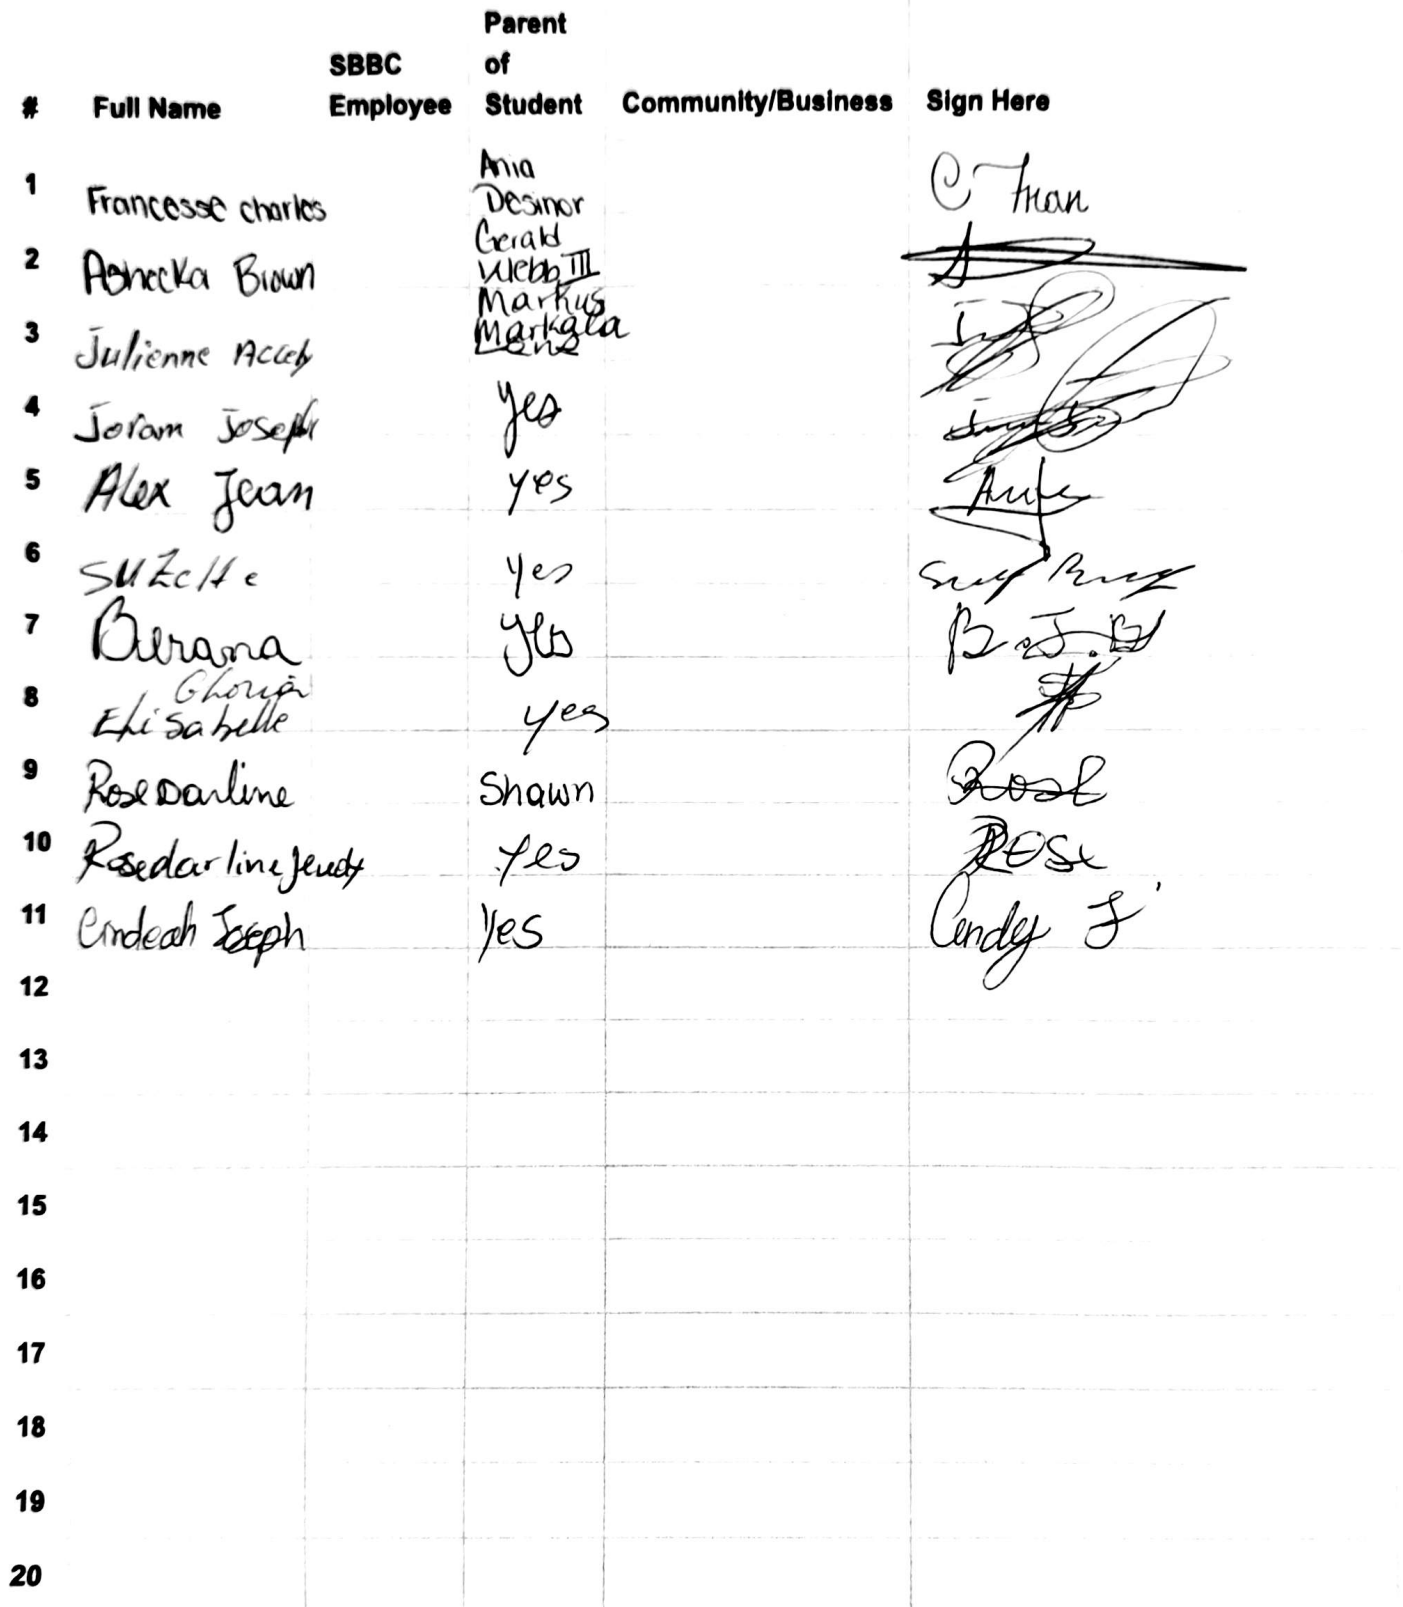 # Full Name SBBC Employee Parent of Student Community/Business Sign Here
1 Francesse charles Ania Desinor C Fran
2 Ashecka Brown Gerald Webb III
3 Julienne Markus Markala Lane
4 Joram Joseph yes
5 Alex Jean yes
6 SUZette yes
7 Berana yes B.J.B
8 Ghoria Elisabelle yes
9 Rose Darline Shawn Rose
10 Rosedarline Jeudy yes ROSE
11 Cindeah Joseph Yes Cendy J
12
13
14
15
16
17
18
19
20